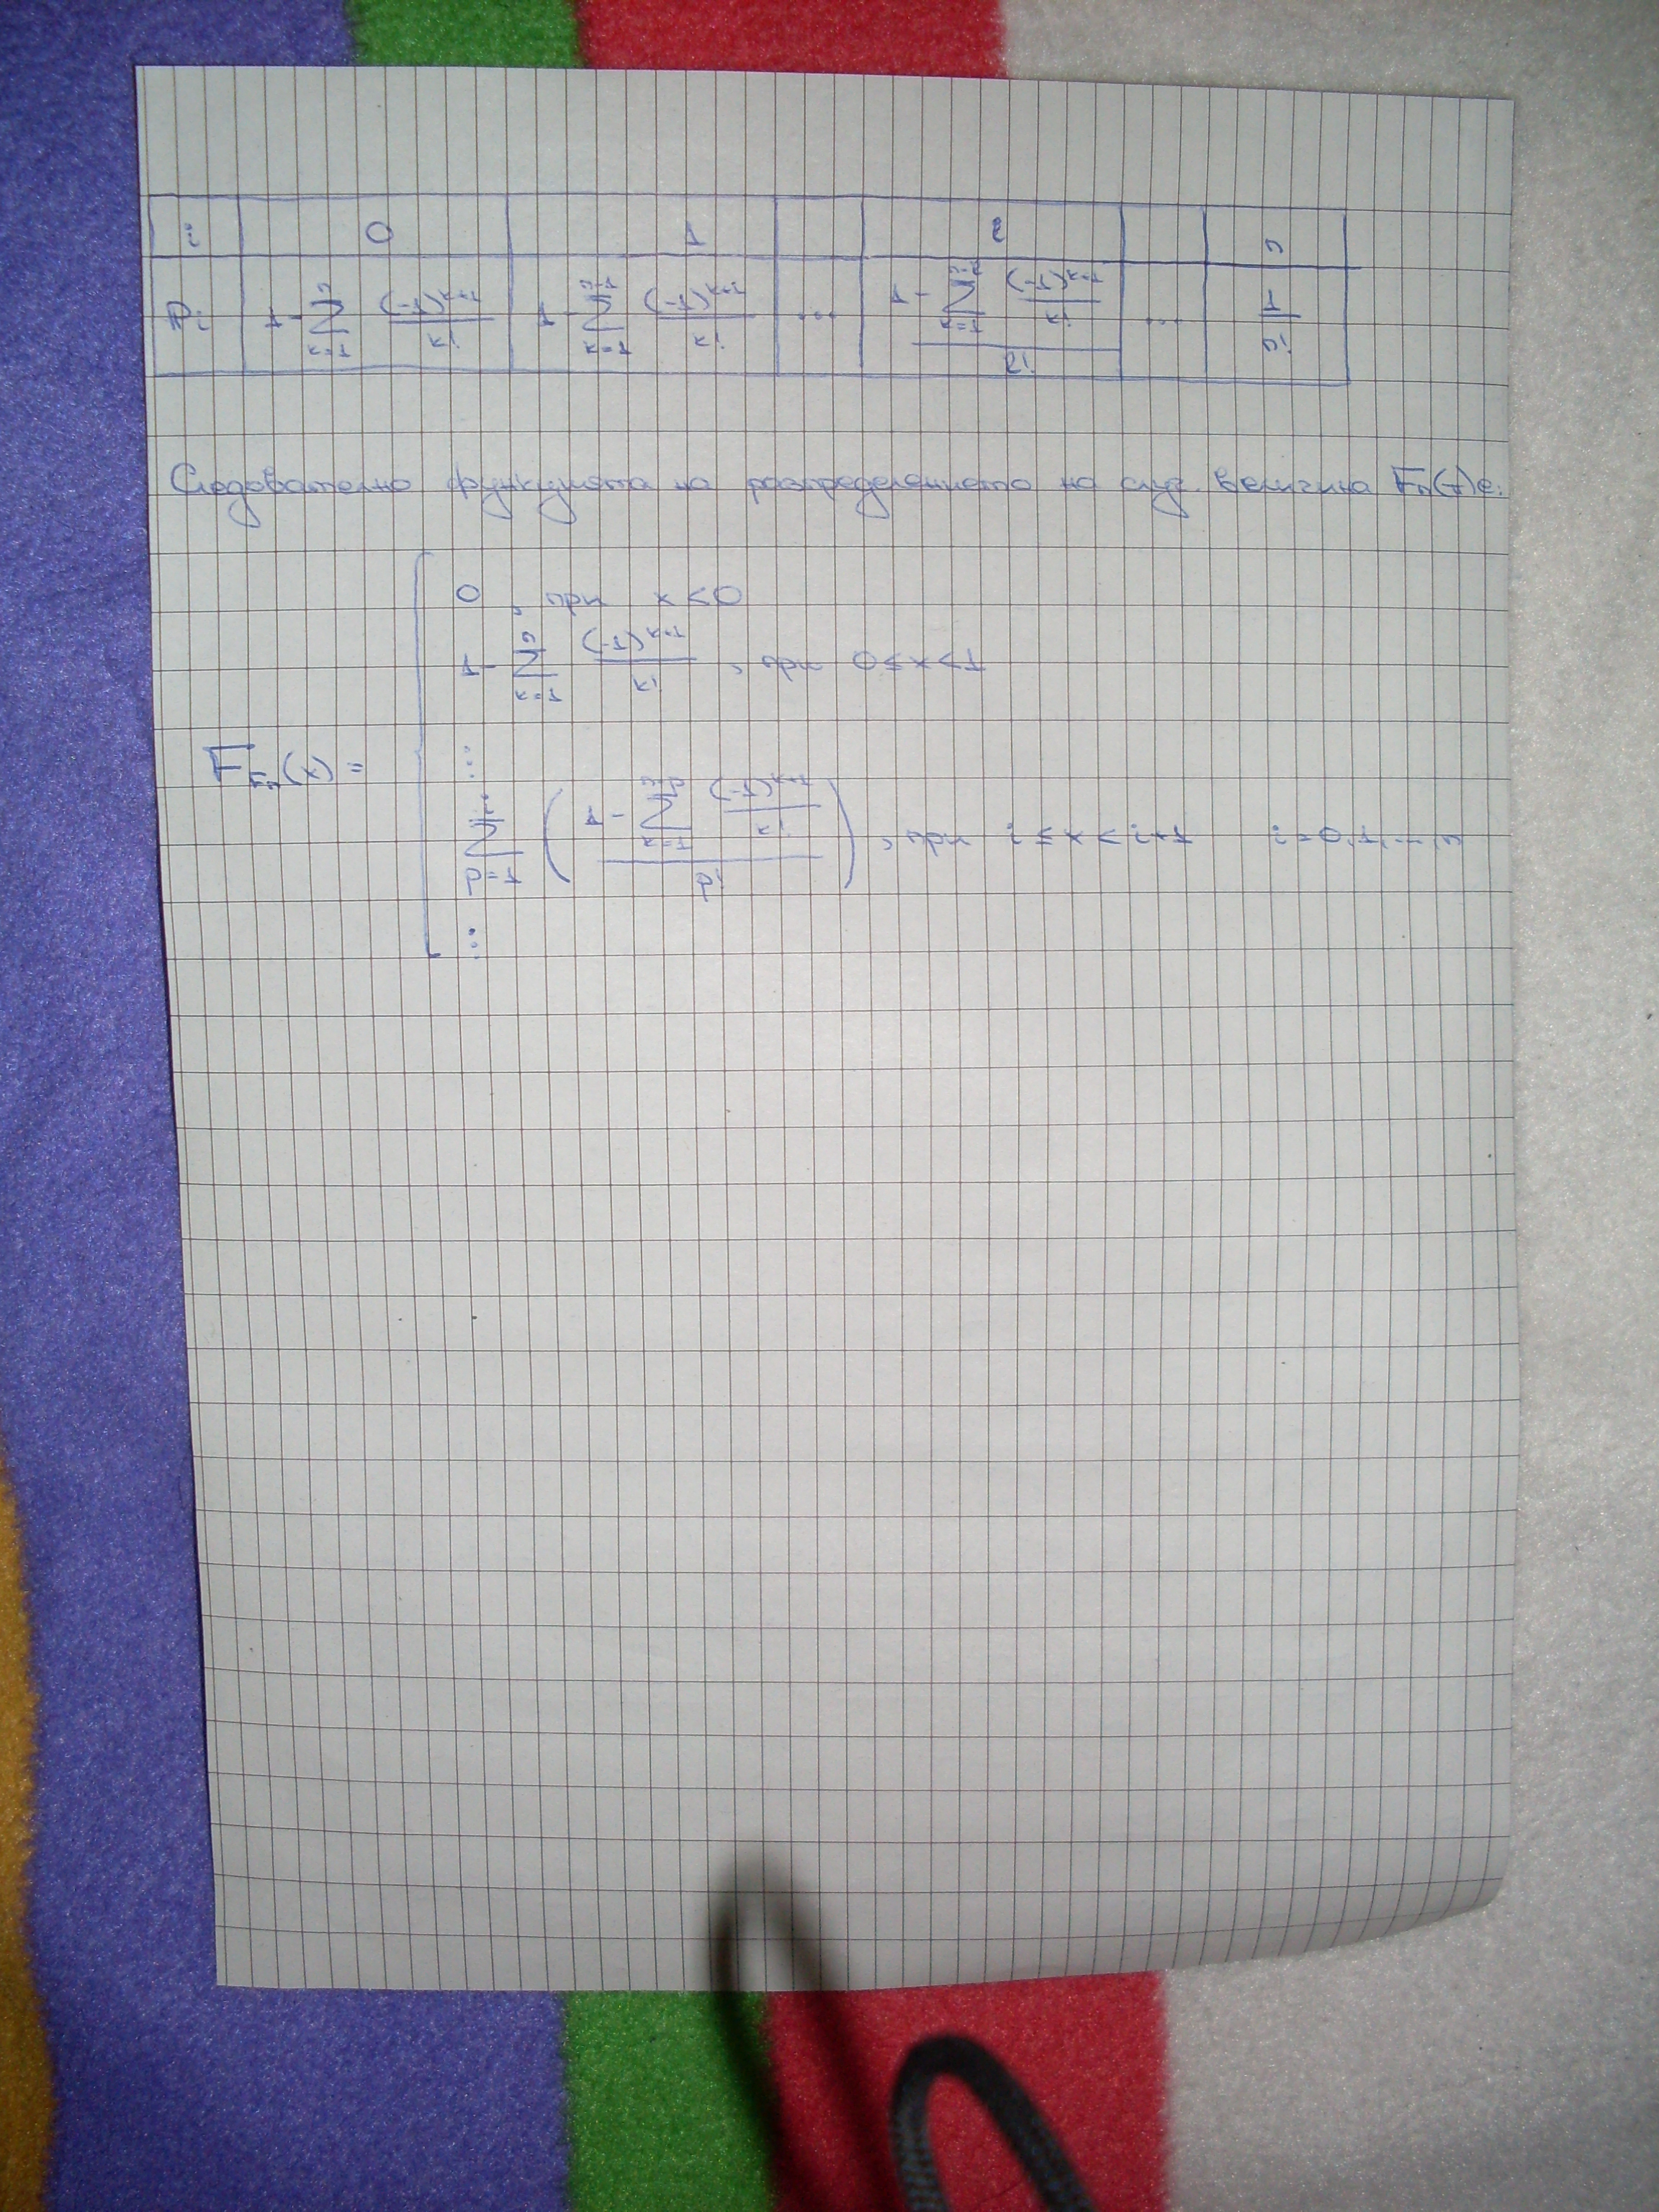 i 0 1 i n
P_i 1-\sum_{k=1}^{n} \frac{(-1)^{k+1}}{k!} 1-\sum_{k=1}^{n-1} \frac{(-1)^{k+1}}{k!} ... \frac{1-\sum_{k=1}^{n-i} \frac{(-1)^{k+1}}{k!}}{i!} ... \frac{1}{n!}
Следователно функцията на разпределението на случ. величина F_n(π) е:
0 , при x<0
1-\sum_{k=1}^{n} \frac{(-1)^{k+1}}{k!} , при 0≤x<1
⋮
F_{F_n}(x) =
\sum_{p=1}^{i} \left( \frac{1-\sum_{k=1}^{n-p} \frac{(-1)^{k+1}}{k!}}{p!} \right) , при i≤x<i+1 i=0,1,...,n
⋮